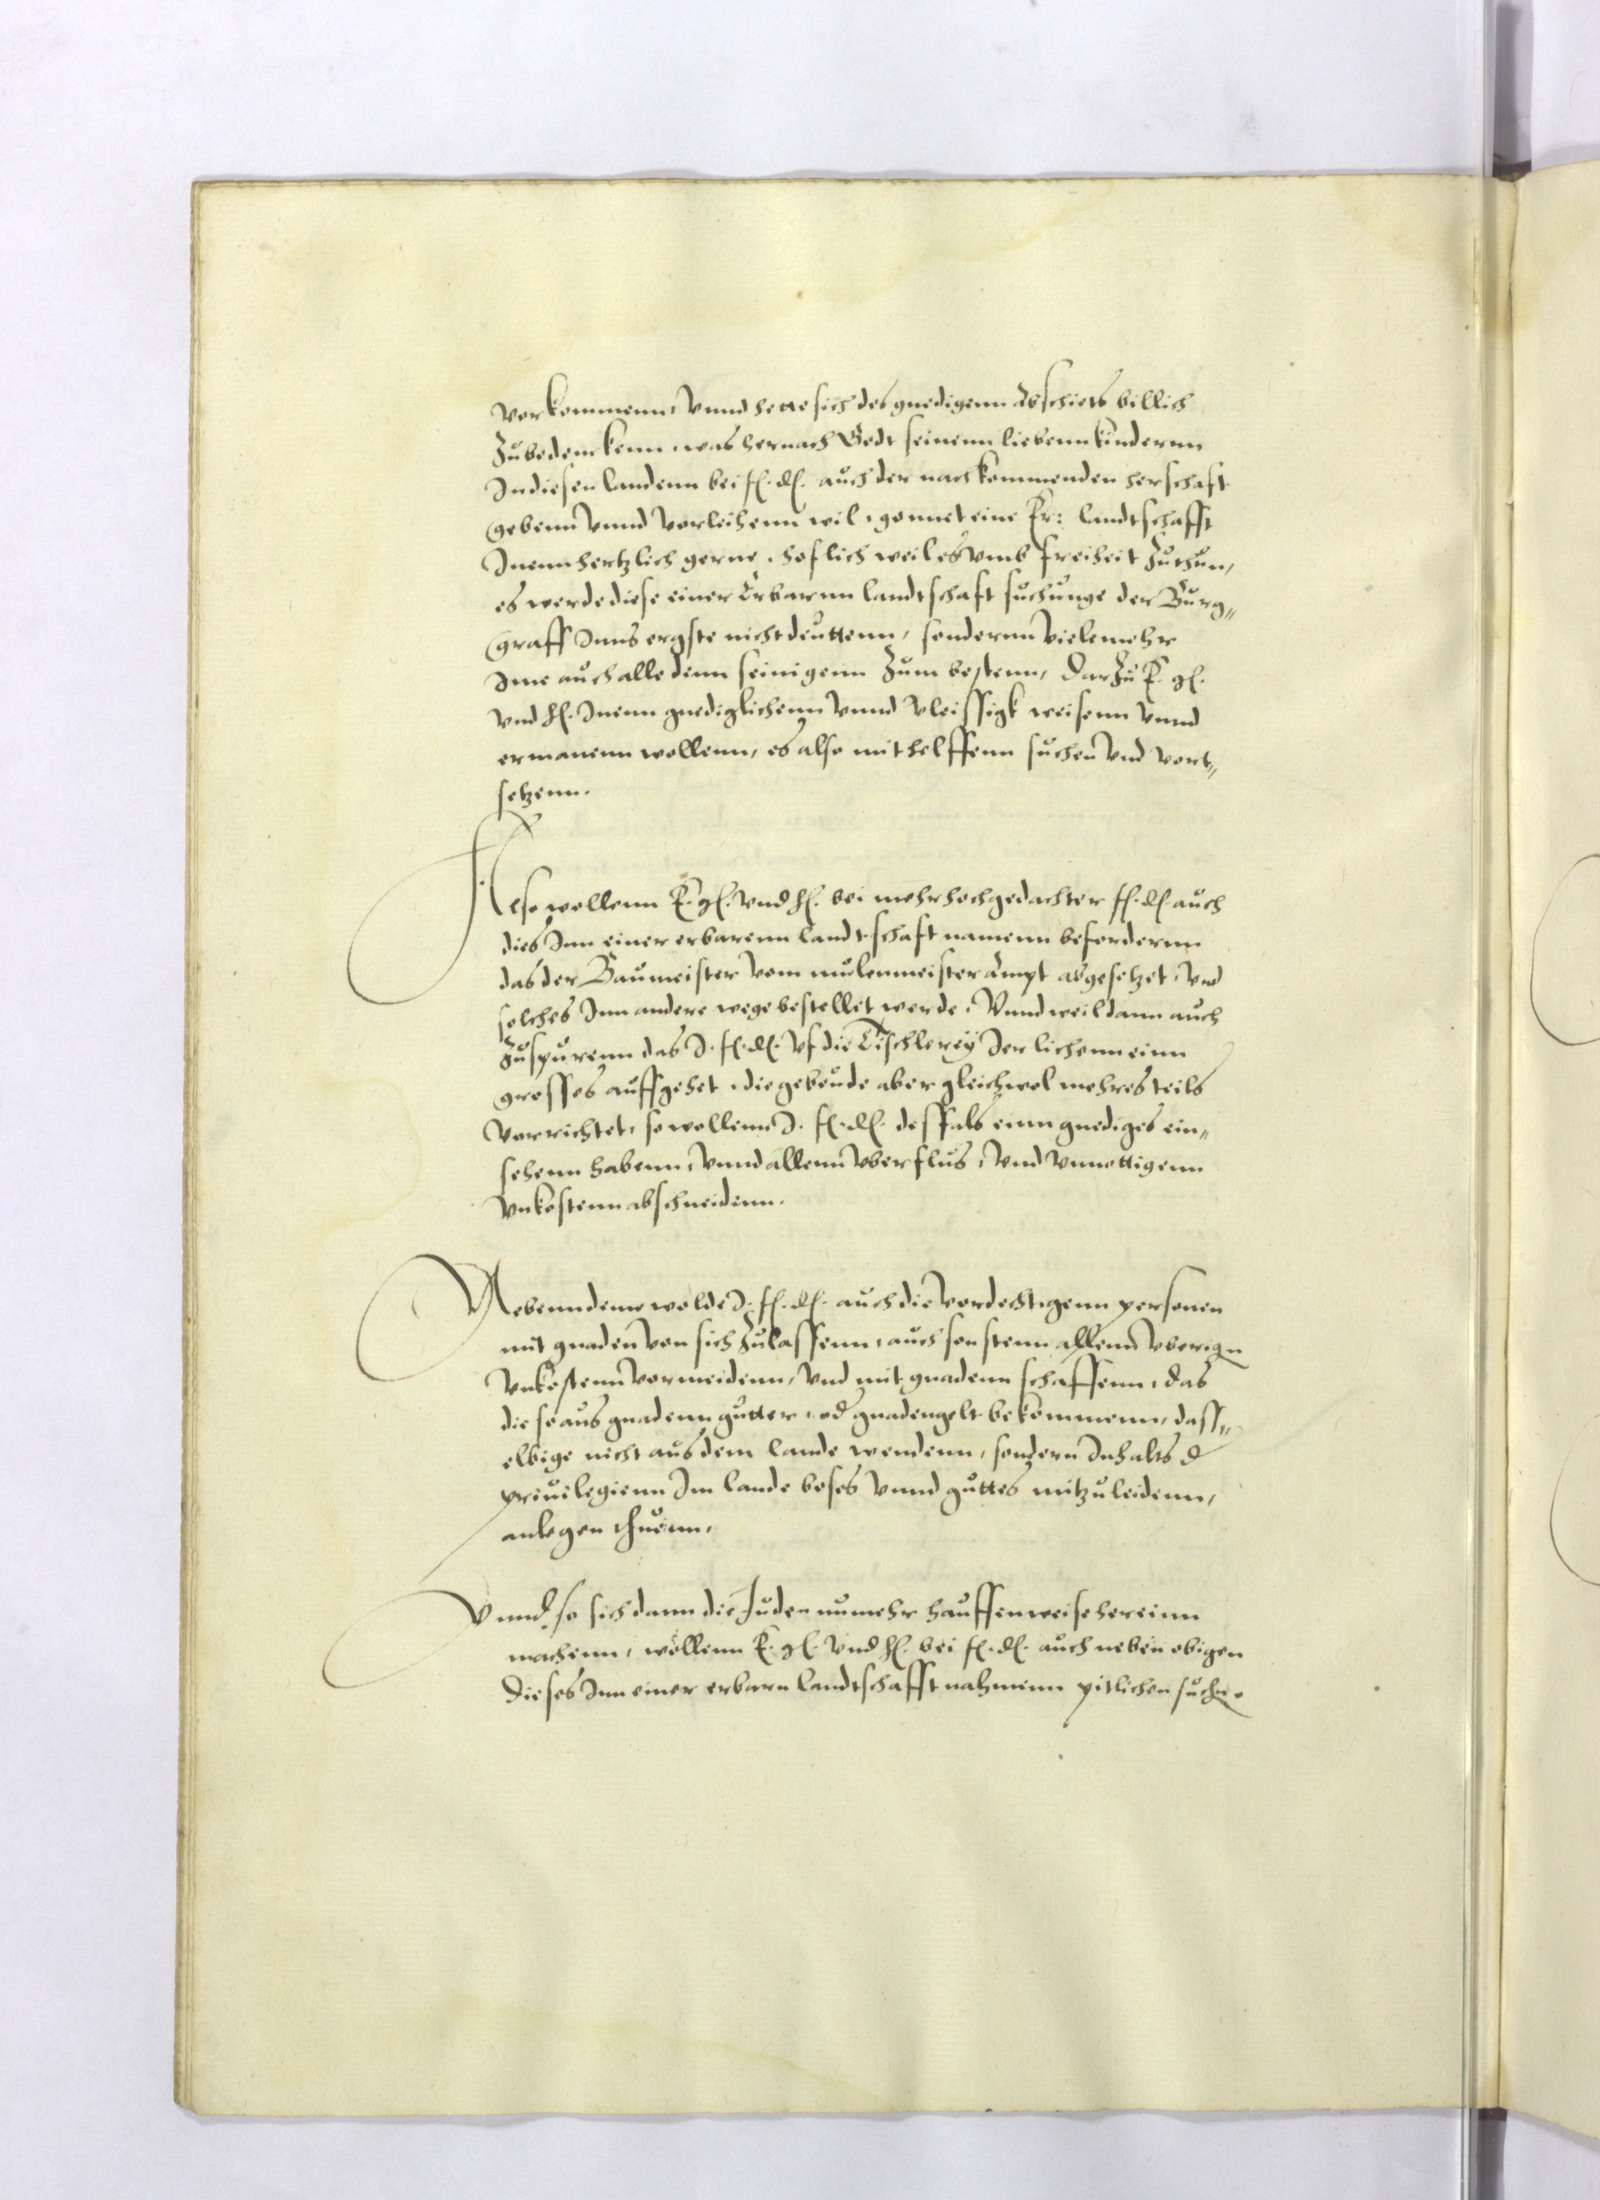 vorkommenn, vnnd hette sich des gnedigenn Abschiets billich
Zubedenckenn, was hernach Godt seinenn liebenn kindernn
In diesen landenn bei f. d. auch der nachkommenden herschaft
gebenn vnnd vorleihenn wil, gonnet eine Er: landtschafft
Inenn hertzlich gerne, hoflich weil es vmb freiheit Zuthun,
es werde diese einer Erbarnn landtschaft suchunge der Burg„
graff Inns ergste nicht deuttenn, sondernn vielemehr
Ime auch alle denn seinigenn Zum bestenn, darZu E. g.
vnd h. Inenn gnediglichenn vnnd vleissigk weisenn vnnd
ermanenn wollenn, es also mit helffenn suchen vnd vort„
setzenn.
Also wollenn E. g. vnd h. bei mehrhochgedachter f. d. auch
dies Inn einer erbarenn landtschaft namenn befordernn
das der Baumeister vom mulenmeister Ampt abgesetzet, vnd
solches Inn andere wege bestellet werde, Vnnd weil dann auch
Zuspurenn das I. f. d. vf die Tischlerey Jerlichenn einn
grosses auffgehet, die gebeude aber gleichwol mehres teils
vorrichtet, so wollenn I. f. d. desfals einn gnediges ein„
sehenn habenn, vnnd allenn vberflus, vnd vnnottigenn
vnkostenn abschneidenn.
Nebenn deme wolde I. f. d. auch die vordechtigenn personen
mit gnaden von sich Zulassenn, auch sonstenn allenn vberign
vnkostenn vormeidenn, vnd mit gnadenn schaffenn, das
die so aus gnadenn gutter, od gnadengelt bekommenn, dass„
elbige nicht aus dem lande wendenn, sondern Inhalts d
priuilegienn Im lande boses vnnd guttes mitzuleidenn,
anlegen thuenn,
Vnnd so sich dann die Juden numehr hauffenweise hereinn
machenn, wollenn E. g. vnd h. bei f. d. auch neben obigen
dieses Inn einer erbarn landtschafft nahmenn pitlichen suchn.